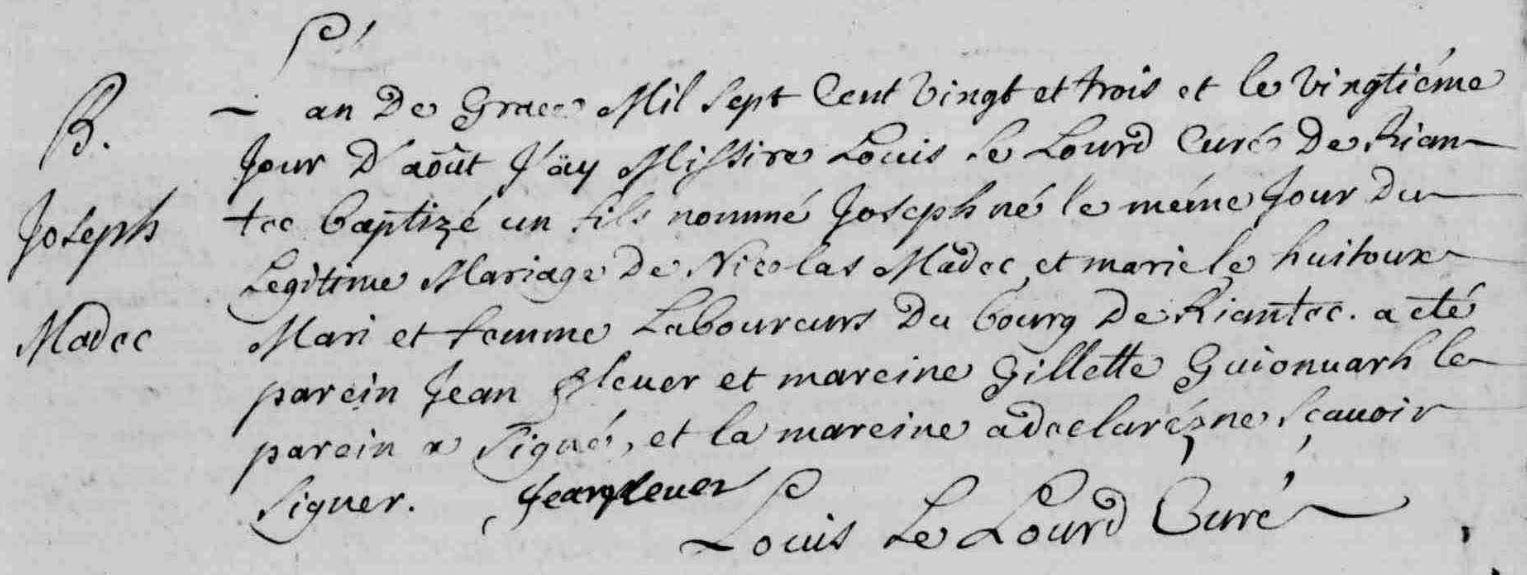 B.
Joseph
Madec
L'an De Grace Mil Sept Cent Vingt et trois et le Vingtiéme
Jour D'août J'äy Missire Louis Le Lourd Curé De Rian-
tec baptizé un fils nommé Joseph né le méme Jour Du
Legitime Mariage De Nicolas Madec et marie le huitoux
Mari et femme Laboureurs Du bourg De Riantec. a eté
parein Jean et mareine Gillette Guionuarh le
parein a Signé, et la mareine a declaré ne Sçauoir
Signer. Jean
Louis Le Lourd Curé